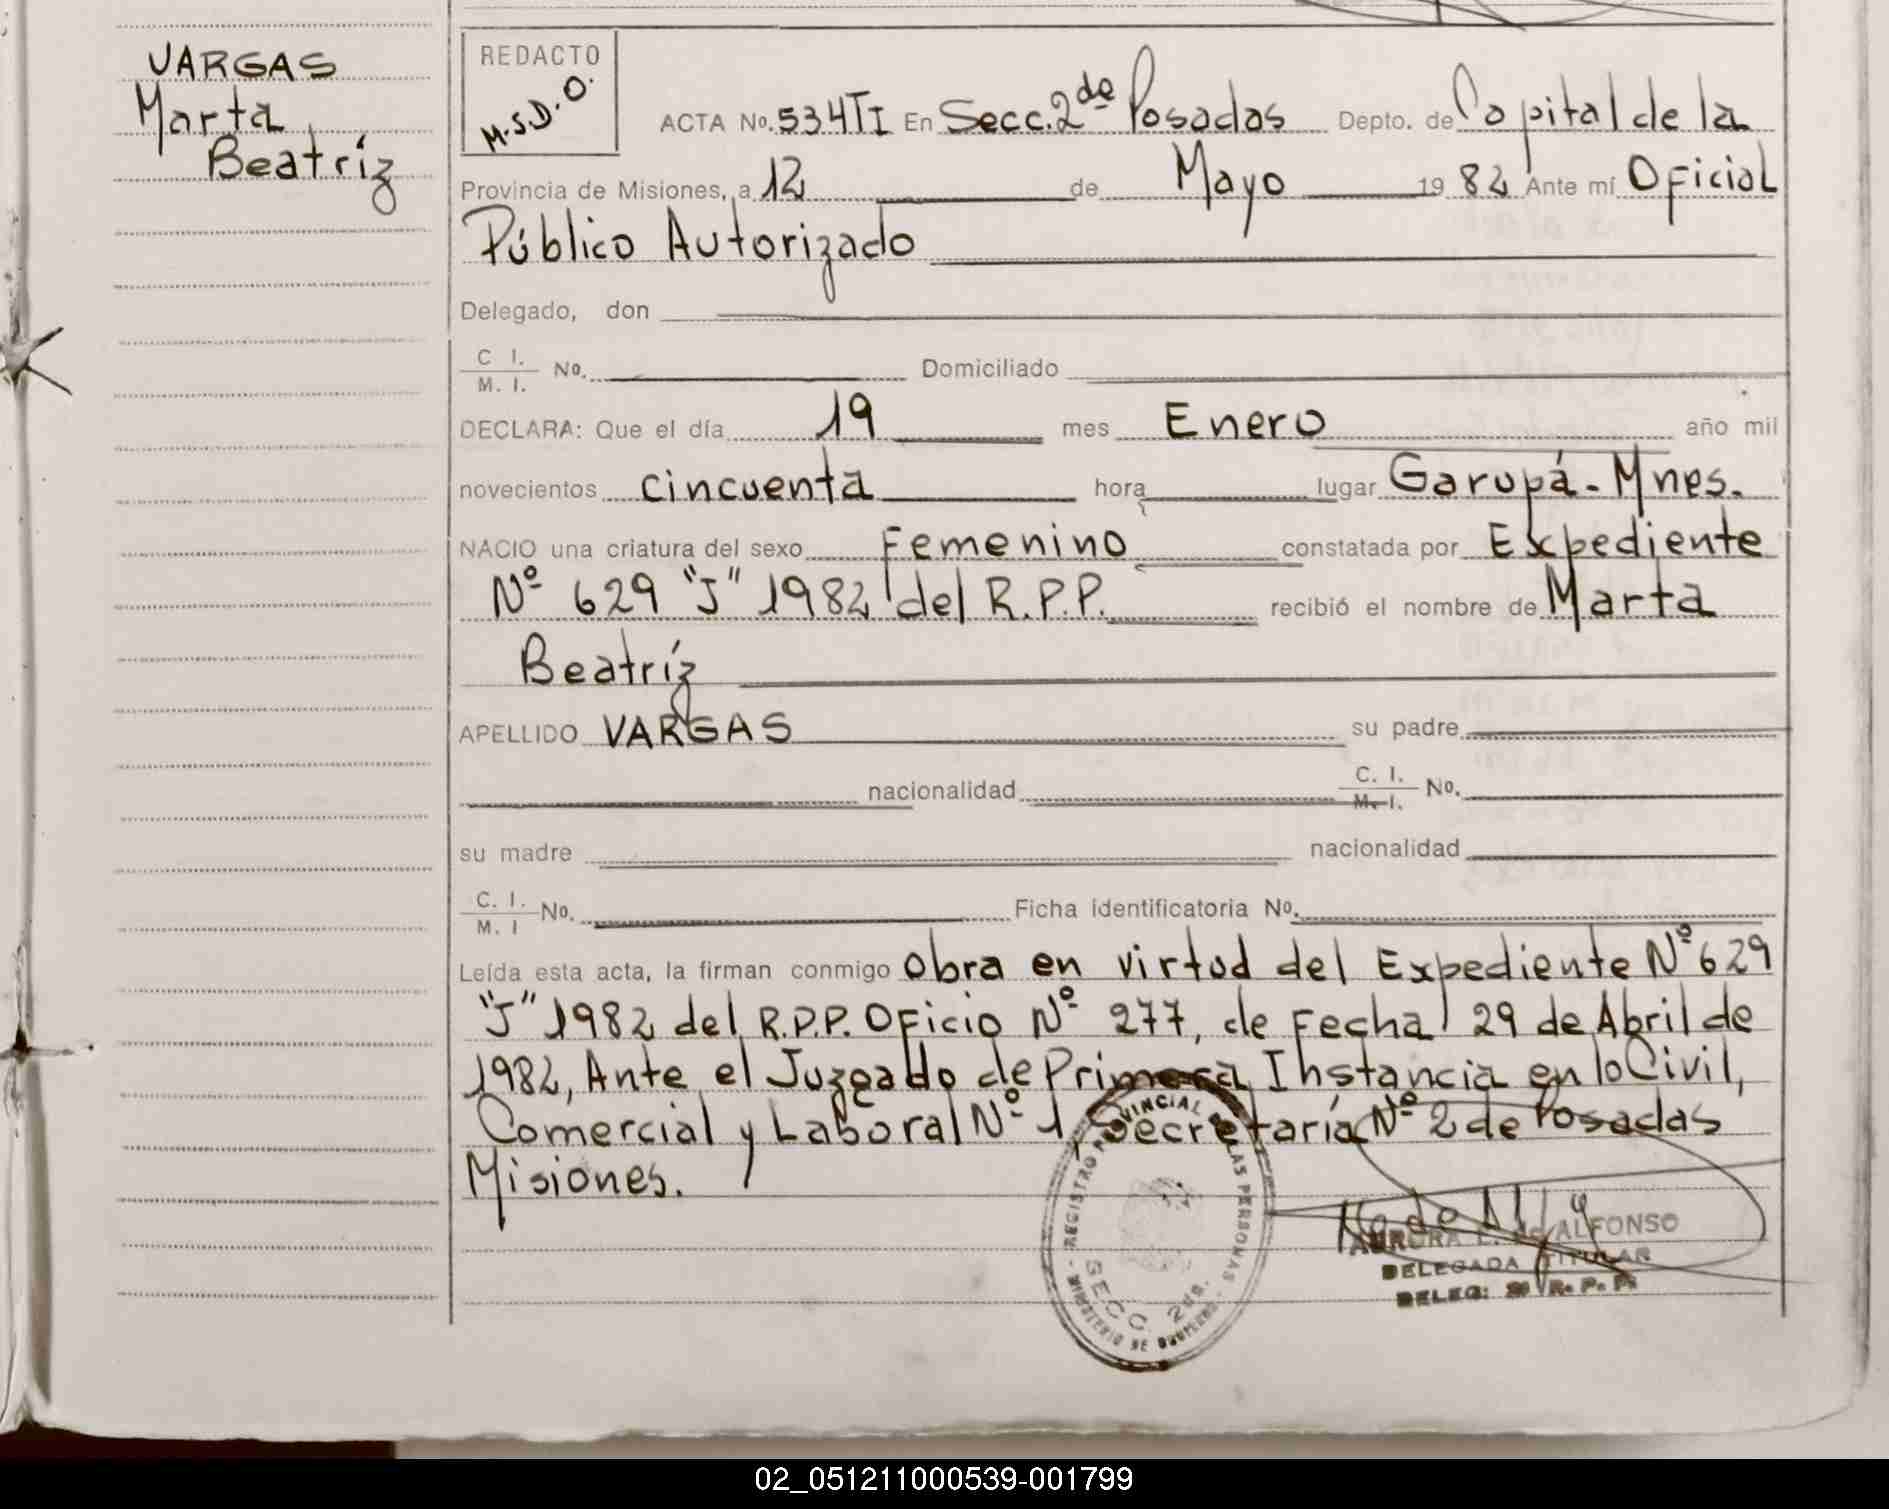 VARGAS
Marta
Beatríz
REDACTO
M.S.D.O.
ACTA No. 534TI En Secc. 2da Posadas Depto. de Capital de la
Provincia de Misiones, a 12 de Mayo 1982 Ante mí Oficial
Público Autorizado
Delegado, don
C I.
M. I. No. Domiciliado
DECLARA: Que el día 19 mes Enero año mil
novecientos cincuenta hora lugar Garupá - Mnes.
NACIO una criatura del sexo Femenino constatada por Expediente
Nº 629 "J" 1982 del R.P.P. recibió el nombre de Marta
Beatríz
APELLIDO VARGAS su padre
nacionalidad C. I. M. I. No.
su madre nacionalidad
C. I.
M. I No. Ficha identificatoria No.
Leída esta acta, la firman conmigo obra en virtud del Expediente Nº 629
"J" 1982 del R.P.P. Oficio Nº 277, de Fecha 29 de Abril de
1982, Ante el Juzgado de Primera Instancia en lo Civil,
Comercial y Laboral Nº 1, Secretaría Nº 2 de Posadas
Misiones.
REGISTRO PROVINCIAL DE LAS PERSONAS
SECC. 2da.
MINISTERIO DE GOBIERNO
AURORA E. de ALFONSO
DELEGADA TITULAR
DELEG: R. P. P.
02_051211000539-001799